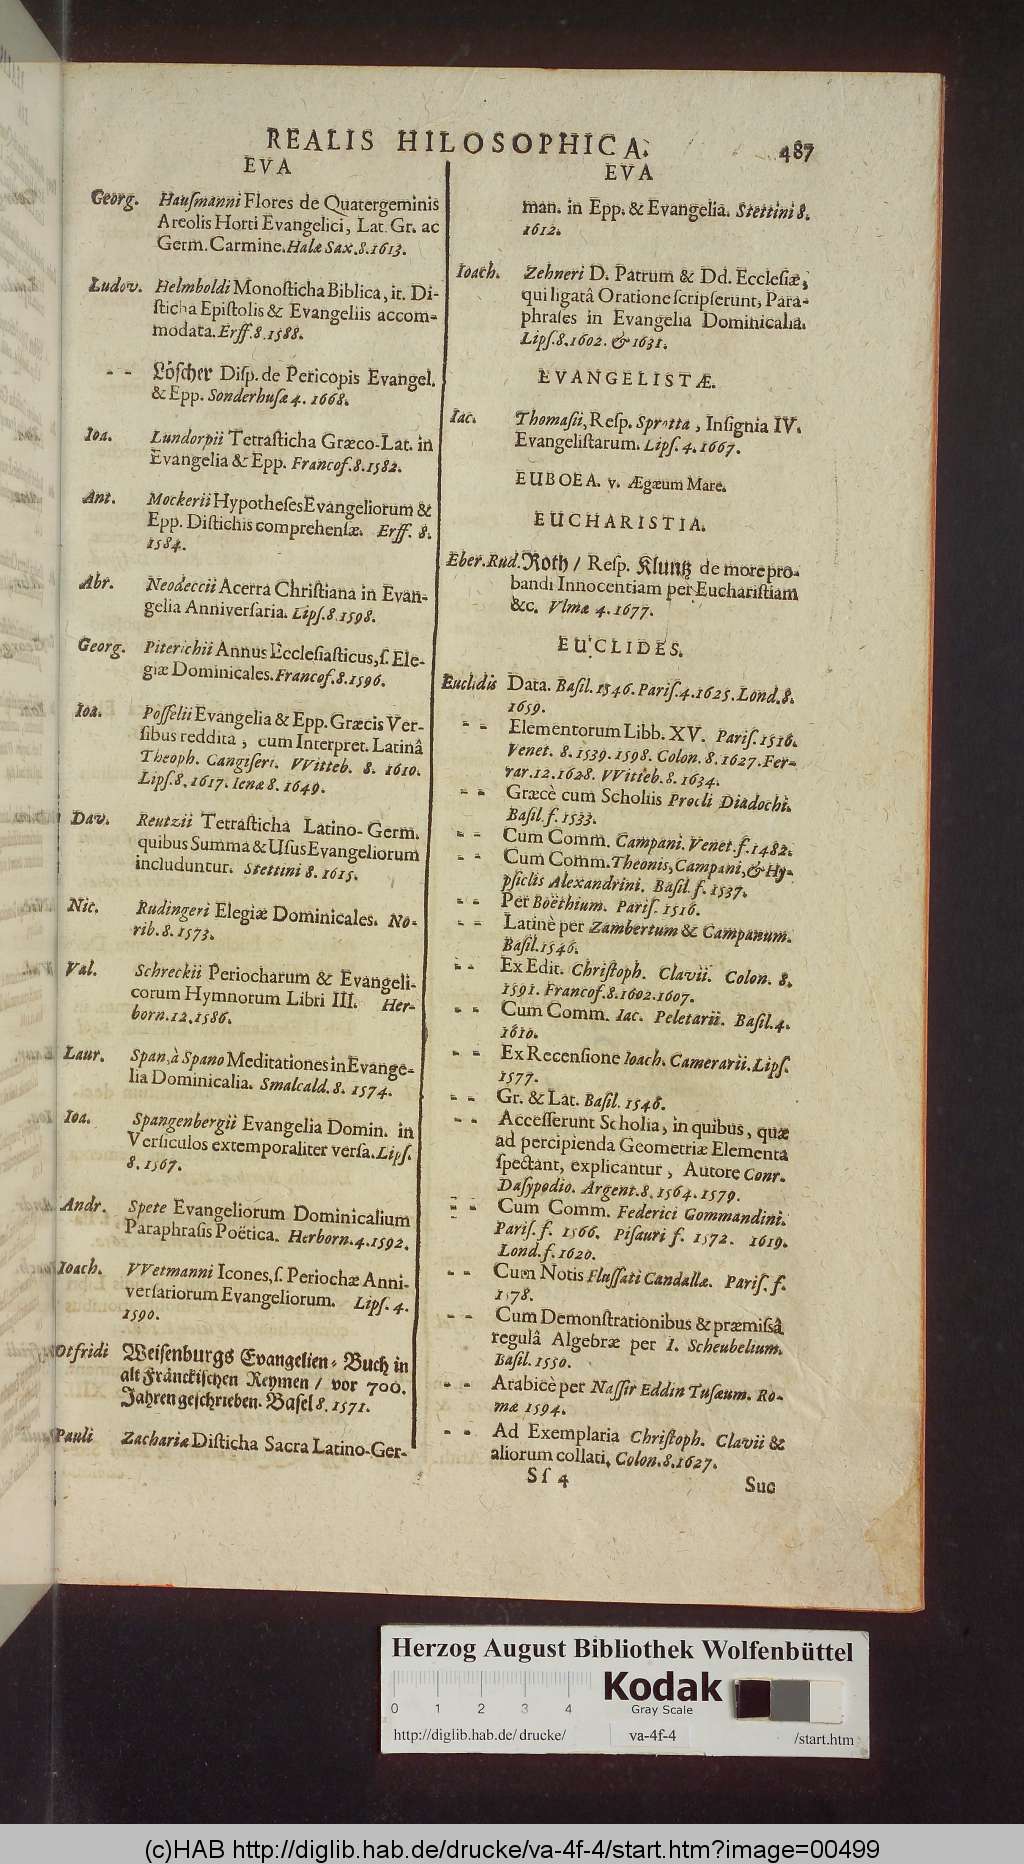 REALIS HILOSOPHICA. 487
EVA
Georg. Hauſmanni Flores de Quatergeminis
Areolis Horti Evangelici, Lat. Gr. ac
Germ. Carmine. Halæ Sax. 8. 1613.
Ludov. Helmboldi Monoſticha Biblica, it. Di-
ſticha Epiſtolis & Evangeliis accom-
modata. Erff. 8. 1588.
- - Löſcher Diſp. de Pericopis Evangel.
& Epp. Sonderhuſæ 4. 1668.
Ioa. Lundorpii Tetraſticha Græco-Lat. in
Evangelia & Epp. Francof. 8. 1582.
Ant. Mockerii Hypotheſes Evangeliorum &
Epp. Diſtichis comprehenſæ. Erff. 8.
1584.
Abr. Neodeccii Acerra Chriſtiana in Evan-
gelia Anniverſaria. Lipſ. 8. 1598.
Georg. Piterichii Annus Eccleſiaſticus, ſ. Ele-
giæ Dominicales. Francof. 8. 1596.
Ioa. Poſſelii Evangelia & Epp. Græcis Ver-
ſibus reddita, cum Interpret. Latinâ
Theoph. Cangiſeri. VVitteb. 8. 1610.
Lipſ. 8. 1617. Ienæ 8. 1649.
Dav. Reutzii Tetraſticha Latino-Germ.
quibus Summa & Uſus Evangeliorum
includuntur. Stettini 8. 1615.
Nic. Rudingeri Elegiæ Dominicales. No-
rib. 8. 1573.
Val. Schreckii Periocharum & Evangeli-
corum Hymnorum Libri III. Her-
born. 12. 1586.
Laur. Span, à Spano Meditationes in Evange-
lia Dominicalia. Smalcald. 8. 1574.
Ioa. Spangenbergii Evangelia Domin. in
Verſiculos extemporaliter verſa. Lipſ.
8. 1567.
Andr. Spete Evangeliorum Dominicalium
Paraphraſis Poëtica. Herborn. 4. 1592.
Ioach. VVetmanni Icones, ſ. Periochæ Anni-
verſariorum Evangeliorum. Lipſ. 4.
1590.
Otfridi Weiſenburgs Evangelien-Buch in
alt Fränckiſchen Reymen / vor 700.
Jahren geſchrieben. Baſel 8. 1571.
Pauli Zachariæ Diſticha Sacra Latino-Ger-
EVA
man. in Epp. & Evangelia. Stettini 8.
1612.
Ioach. Zehneri D. Patrum & Dd. Eccleſiæ,
qui ligatâ Oratione ſcripſerunt, Para-
phraſes in Evangelia Dominicalia.
Lipſ. 8. 1602. & 1631.
EVANGELISTÆ.
Iac. Thomaſii, Reſp. Sprotta, Inſignia IV.
Evangeliſtarum. Lipſ. 4. 1667.
EUBOEA. v. Ægæum Mare.
EUCHARISTIA.
Eber. Rud. Roth / Reſp. Kluntz de more pro-
bandi Innocentiam per Euchariſtiam
&c. Vlmæ 4. 1677.
EUCLIDES.
Euclidis Data. Baſil. 1546. Pariſ. 4. 1625. Lond. 8.
1659.
- - Elementorum Libb. XV. Pariſ. 1516.
Venet. 8. 1539. 1598. Colon. 8. 1627. Fer-
rar. 12. 1628. VVitteb. 8. 1634.
- - Græcè cum Scholiis Procli Diadochi.
Baſil. f. 1533.
- - Cum Comm. Campani. Venet. f. 1482.
- - Cum Comm. Theonis, Campani, & Hy-
pſiclis Alexandrini. Baſil. f. 1537.
- - Per Boëthium. Pariſ. 1516.
- - Latinè per Zambertum & Campanum.
Baſil. 1546.
- - Ex Edit. Chriſtoph. Clavii. Colon. 8.
1591. Francof. 8. 1602. 1607.
- - Cum Comm. Iac. Peletarii. Baſil. 4.
1610.
- - Ex Recenſione Ioach. Camerarii. Lipſ.
1577.
- - Gr. & Lat. Baſil. 1546.
- - Acceſſerunt Scholia, in quibus, quæ
ad percipienda Geometriæ Elementa
ſpectant, explicantur, Autore Conr.
Daſypodio. Argent. 8. 1564. 1579.
- - Cum Comm. Federici Commandini.
Pariſ. f. 1566. Piſauri f. 1572. 1619.
Lond. f. 1620.
- - Cum Notis Fluſſati Candallæ. Pariſ. f.
1578.
- - Cum Demonſtrationibus & præmiſsâ
regulâ Algebræ per I. Scheubelium.
Baſil. 1550.
- - Arabicè per Naſſir Eddin Tuſæum. Ro-
mæ 1594.
- - Ad Exemplaria Chriſtoph. Clavii &
aliorum collati. Colon. 8. 1627.
Sſ 4 Suc
Herzog August Bibliothek Wolfenbüttel
0 1 2 3 4
Kodak
Gray Scale
http://diglib.hab.de/drucke/ va-4f-4 /start.htm
(c)HAB http://diglib.hab.de/drucke/va-4f-4/start.htm?image=00499